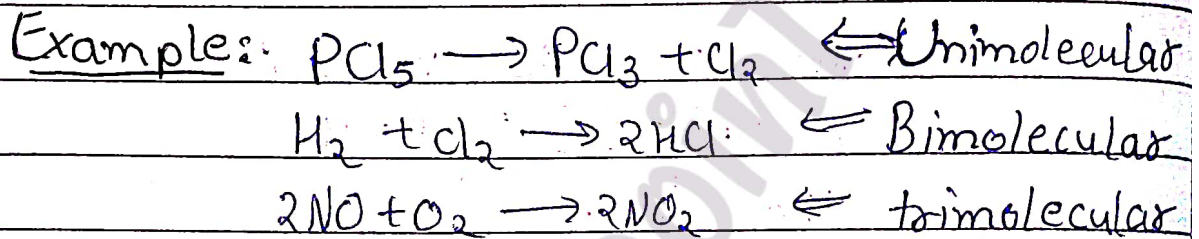 Example:. PCl5 → PCl3 + Cl2 ⇐ Unimolecular
H2 + Cl2 → 2HCl. ⇐ Bimolecular
2NO + O2 → 2NO2 ⇐ trimolecular